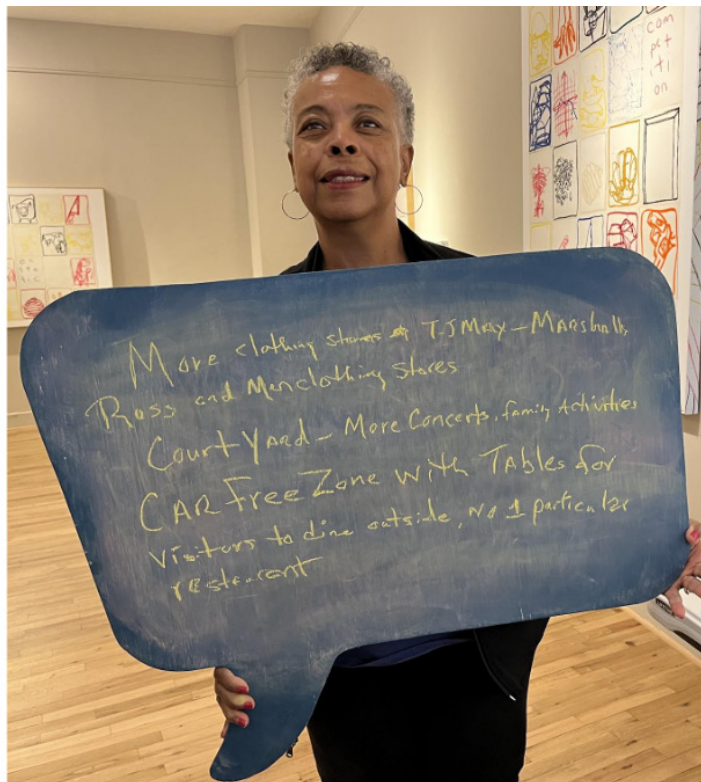 More clothing stores TJMax - Marshalls,
Ross and Menclothing stores
CourtYard - More Concerts, family Activities
CAR Free Zone with Tables for
visitors to dine outside, No 1 particular
restaurant
com
pet
iti
on